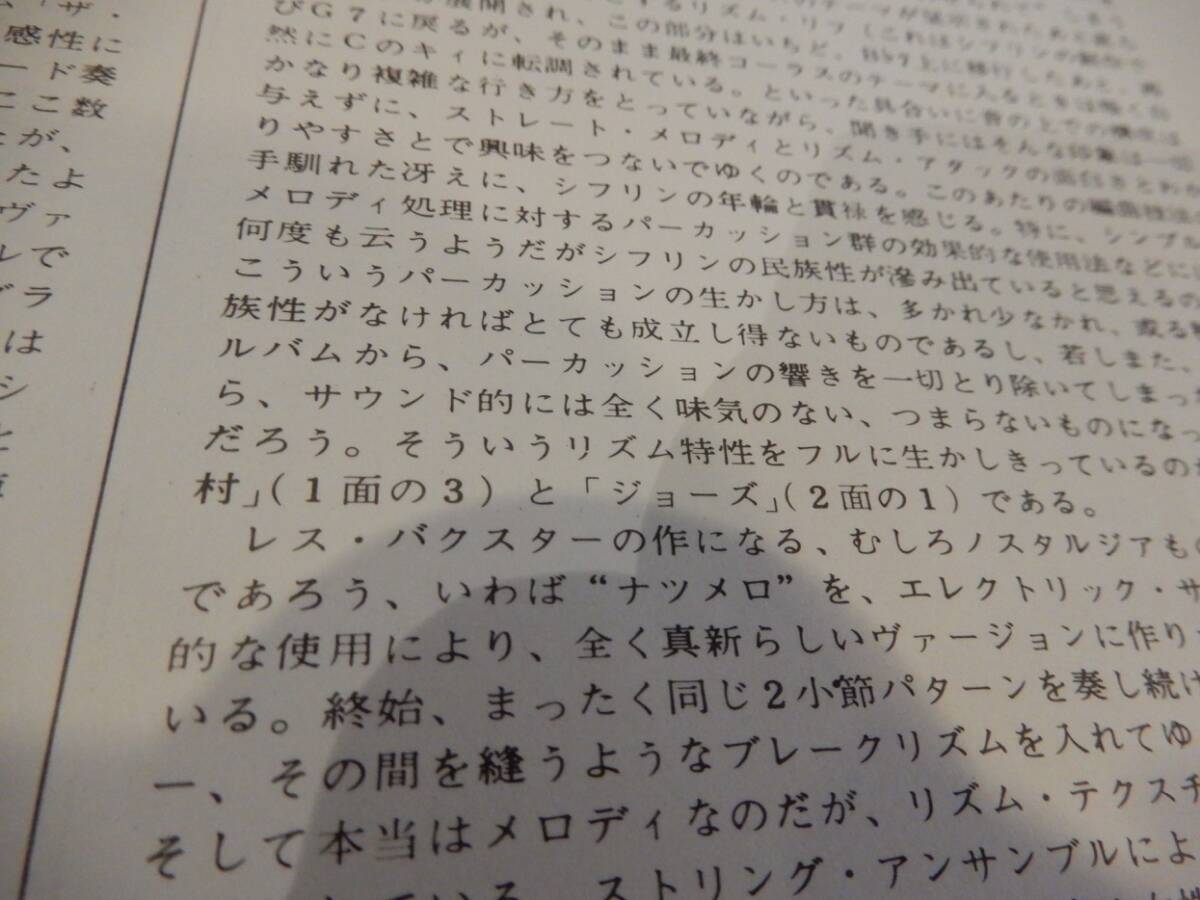 ザ・
感性に
ード奏
ここ数
たが、
たよ
ヴァ
レで
グラ
は
シ
と
びG7に戻るが、そのまま最終コーラスのテーマに入るときは
然にCのキィに転調されている。といった具合いに音の上での
かなり複雑な行き方をとっていながら、聞き手にはそんな印象は一切
与えずに、ストレート・メロディとリズム・アタックの面白さとわか
りやすさとで興味をつないでゆくのである。このあたりの編曲技法の
手馴れた冴えに、シフリンの年輪と貫禄を感じる。特に、シンプル
メロディ処理に対するパーカッション群の効果的な使用法などに
何度も云うようだがシフリンの民族性が滲み出ていると思えるの
こういうパーカッションの生かし方は、多かれ少なかれ、或る
族性がなければとても成立し得ないものであるし、若しまた、
ルバムから、パーカッションの響きを一切とり除いてしまった
ら、サウンド的には全く味気のない、つまらないものになっ
だろう。そういうリズム特性をフルに生かしきっているのが
村」(1面の3)と「ジョーズ」(2面の1)である。
レス・バクスターの作になる、むしろノスタルジアもの
であろう、いわば“ナツメロ”を、エレクトリック・サ
的な使用により、全く真新らしいヴァージョンに作り
いる。終始、まったく同じ2小節パターンを奏し続け
ー、その間を縫うようなブレークリズムを入れてゆ
そして本当はメロディなのだが、リズム・テクスチ
している。ストリング・アンサンブルによ